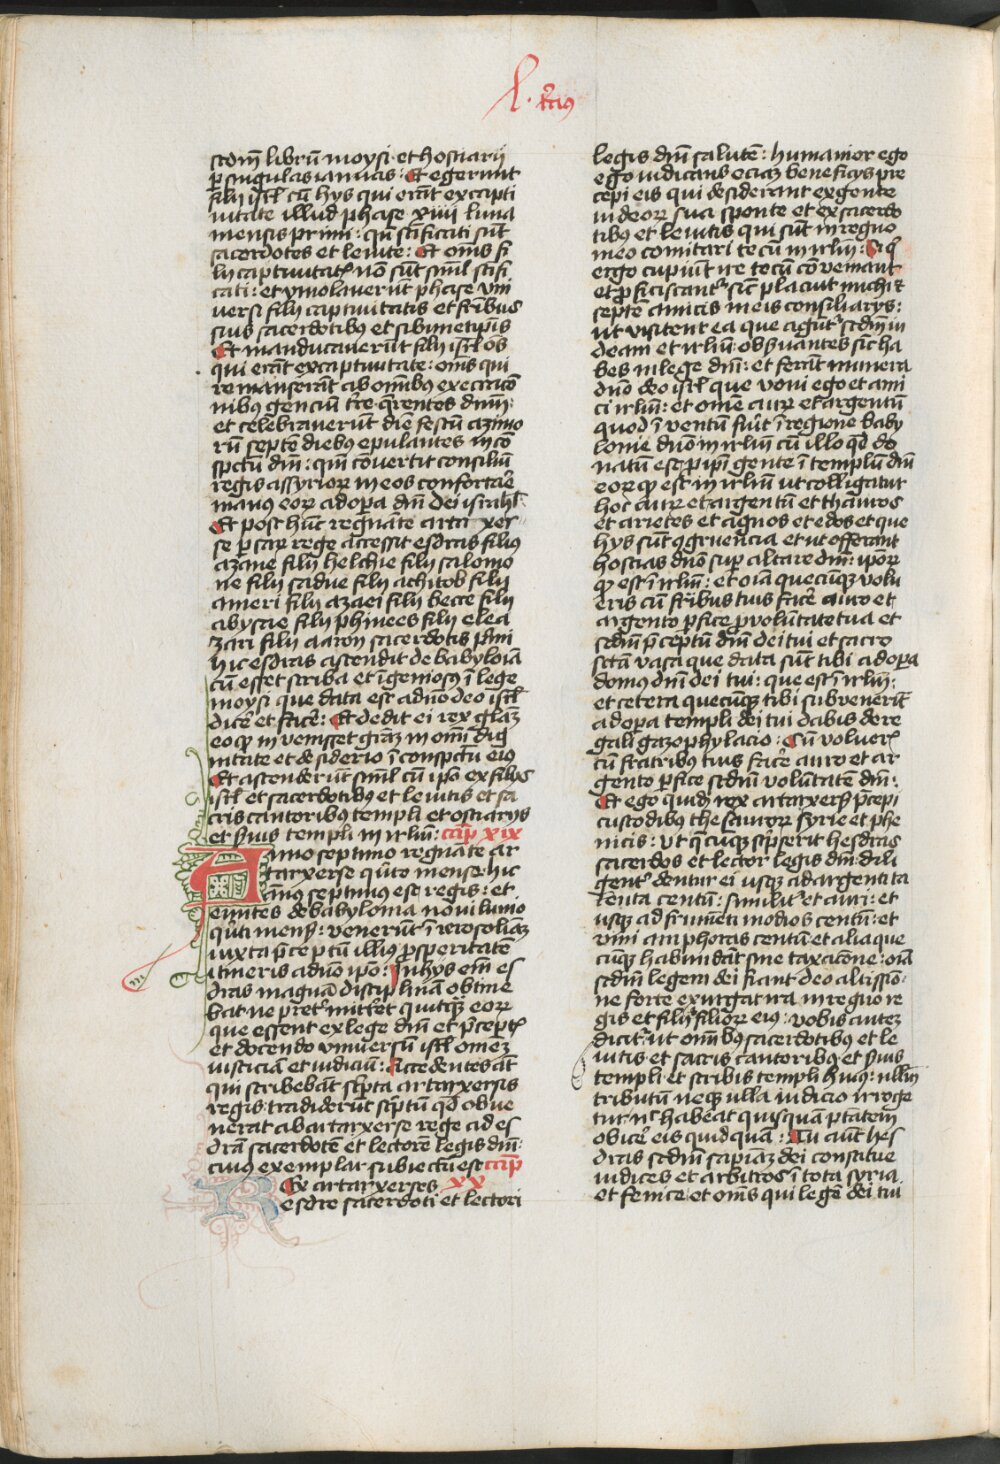 L. t̄cius
scdm̄ librū moysi · et hostiarii
ꝑ singulas ianuas · Et egerunt
filij isrl̄ cū hijs qui erāt ex capti
uitate illud phase xiiii luna
mensis primi : qn̄ scīficati sūt
sacerdotes et leuite : Et om̄s fi
lij captiuitatꝭ nō sūt simul scīfi
cati : et ymolauerūt phase vni
uersi filij captiuitatis et frībus
suis sacerdotibus et sibimetip̄is
Et manducauerūt filij isrl̄ om̄s
qui erāt ex captiuitate : om̄s qui
remanserāt ab om̄ibus execracio
nibus gencium tr̄e q̄rentes dn̄m :
et celebrauerūt diē festū azimo
rū septē diebus epulantes in cō
spctū dn̄i : qm̄ cōuertit consiliū
regis assyrioꝝ in eos confortar̄e
manus eoꝝ ad opera dn̄i dei israhl̄
Et post hūc regnāte artaxer
se ꝑsaꝝ rege accessit esdras filius
azarie filij helchie filij salomo
ne filij sadue filij achitob filij
ameri filij azaei filij bocce filij
abysae filij phinees filij elea
zari filij aaron sacerdotis p̄mi
hic esdras ascendit de babyloīa
cū esset scriba et īgeniosus ī lege
moysi que data est a dn̄o deo isrl̄
dicer̄ et facer̄ : Et dedit ei rex glāz
eo qꝫ inuenisset grāz in om̄i dig
nitate et desiderio ī conspctu eius
Et ascenderūt simul cū ip̄o ex filijs
isrl̄ et sacerdotibus et leuitis et sa
cris cantoribus templi et ostiarijs
et ẜuis templi in irlm̄ : cap̄ xix
Anno septimo regnāte ar
taxerse qn̄to mense : hic
ānus septimus est regis : et
euntes de babylonia nouilunio
qn̄ti mensꝭ : venerūt ī ierosolimā
iuxta p̄ceptū illius ꝓsperitatē
itineris a dn̄o ip̄o : In hijs em̄ es
dras magnā disciplinā obtine
bat ne p̄ter̄mitter̄et quitqꝫ eoꝝ
que essent ex lege dn̄i et p̄ceptꝭ
et docendo vniuersū isrl̄ omēz
iusticiam et iudiciū : Accedentes āt
qui scribebāt sc̄pta artaxersis
regis tradiderūt sc̄ptū qd̄ obue
nerat ab artaxerse rege ad es
drā sacerdotē et lectorē legis dn̄i :
cuius exemplar subiectū est cap̄
Rex artaxerses xx
esdre sacerdoti et lectori
legis dn̄i salutē : humanior ego
ego iudicans eciaꝫ beneficijs pre
cepi eis qui desiderant ex gente
iudeoꝝ sua sponte et ex sacerdo
tibus et leuitis qui sūt in regno
meo comitari tecū in irlm̄ : Si q̄
ergo cupiūt ire tecū cōueniant
et ꝓficiscant᷑ sic̄ placuit michi et
septē amicis meis consiliarijs :
ut visitent ea que agunt᷑ scdm̄ iu
deam et irlm̄ · obẜuantes sic̄ ha
bes in lege dn̄i : et ferāt munera
dn̄o deo isrl̄ que voui ego et ami
ci irlm̄ : et omē auꝝ et argentū
quod īuentū fuit̄ ī regione baby
lonie dn̄o in irlm̄ cū illo qd̄ do
natū est ꝑ ip̄i gente ī templū dn̄i
eoꝝ qꝫ est in irlm̄ ut colligatur
hoc auꝝ et argentū et ad tauros
et arietes et agnos et edos et que
hijs sūt ꝯgruencia et ut offerant
hostias dn̄o super altare dn̄i ip̄oꝝ
qꝫ est ī irlm̄ : et oīa quecūqꝫ volu
eris cū frībus tuis facer̄ auro et
argento ꝑfice ꝓ volūtate tua et
scdm̄ p̄ceptū dn̄i dei tui et sacro
sctā vasa que data sūt tibi ad opa
domus dn̄i dei tui : que est ī irlm̄ :
et cetera quecūqꝫ tibi subuenerīt
ad opa templi dei tui dabis de re
gali gazophylacio : Cū voluerꝭ
cū fratribus tuis facer̄ auro et ar
gento ꝑfice scdm̄ volūtatē dn̄i :
Et ego quidē rex artaxersꝭ p̄cepi
custodibus thesauroꝝ syrie et phe
nicis : ut q̄cūqꝫ sc̄pserit hesdras
sacerdos et lector legis dn̄i dili
gent᷑ dentur ei usqꝫ ad argenti ta
lenta centū : similit᷑ et auri : et
usqꝫ ad frumēti modios centū : et
vini amphoras centū et alia que
cūqꝫ habundāt sine taxacōne : oīa
scdm̄ legem dei fiant deo altissio
ne forte exurgat ira in regno re
gis et filij filioꝝ eius : vobis autez
dicit᷑ ut om̄ibus sacerdotibus et le
uitis et sacris cantoribus et ẜuis
templi et scribis templi huius : nullū
tributū neqꝫ ulla iudicio irroge
tur nc̄ habeat quisquā ptātem
obicer̄ eis quidquā : Tu aūt hes
dras scdm̄ sapiāz dei constitue
iudices et arbitros ī tota syria
et fenice et om̄s qui legē dei tui